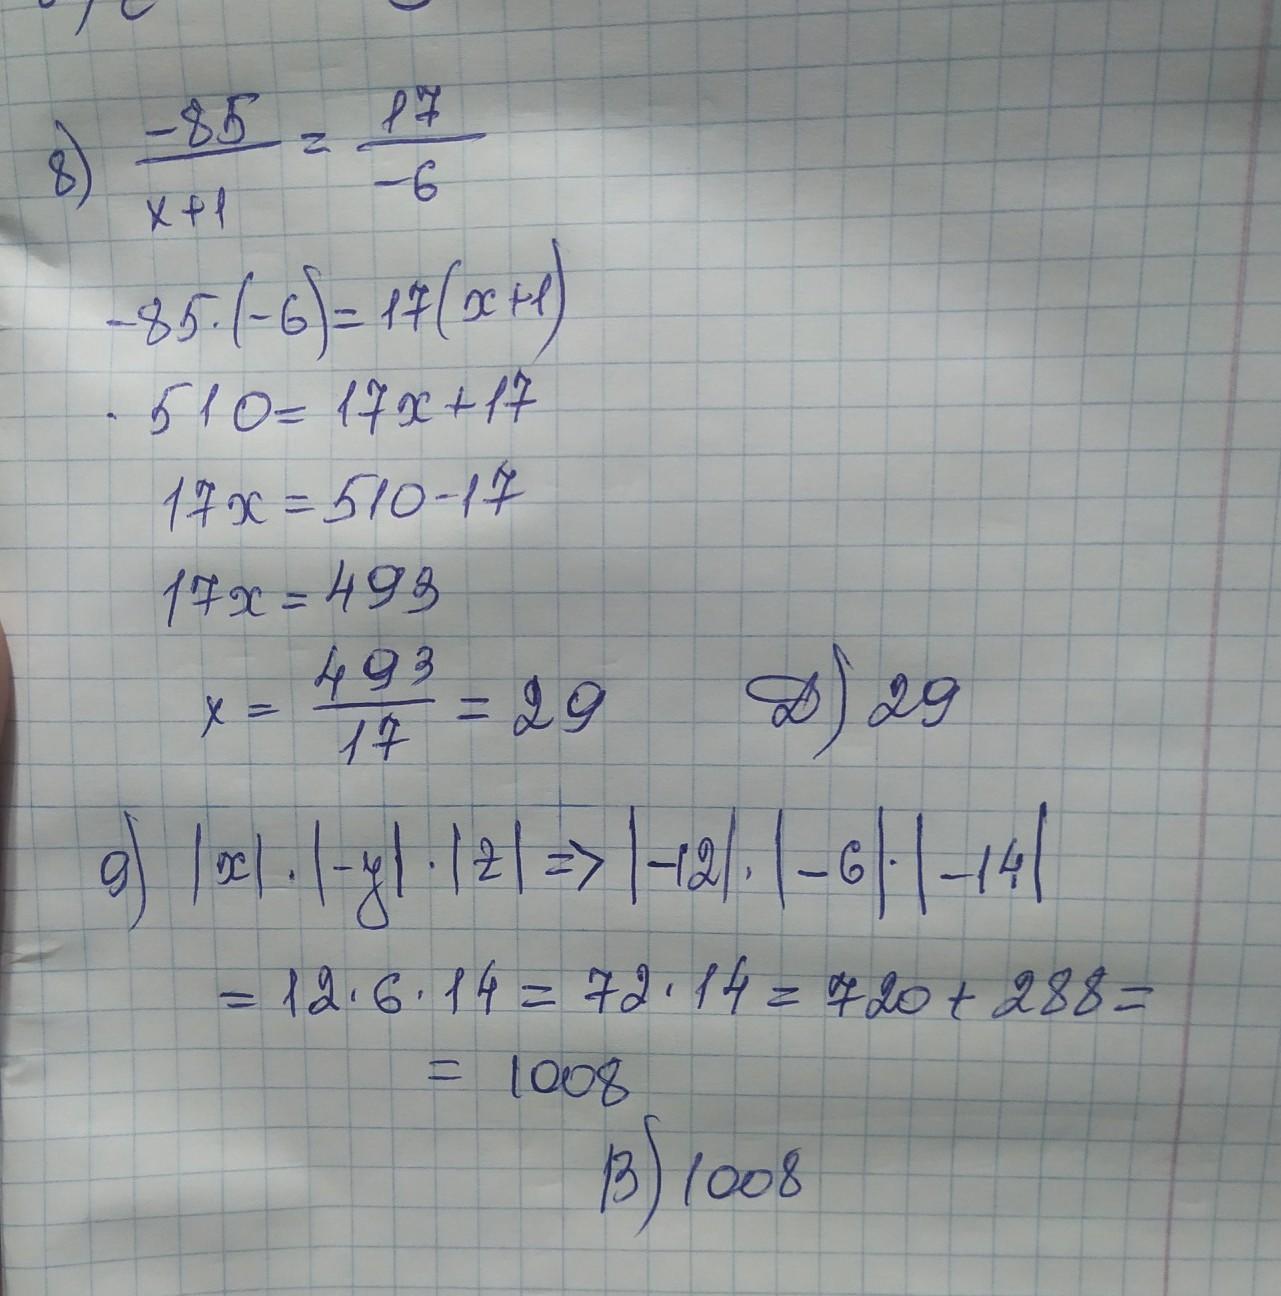 8) -85/x+1 = 17/-6
-85·(-6)=17(x+1)
510=17x+17
17x=510-17
17x=493
x = 493/17 = 29 Д) 29
9) |x|·|-y|·|z| => |-12|·|-6|·|-14|
= 12·6·14 = 72·14 = 720 + 288 =
= 1008
В) 1008